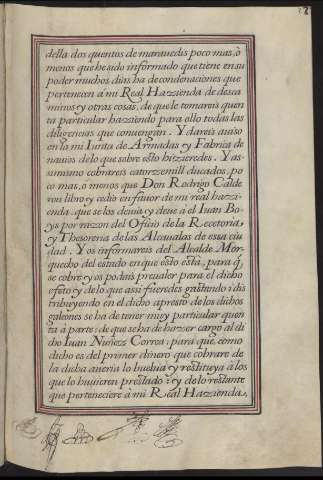 della dos quentos de marauedis poco mas, ò
menos que he sido informado que tiene en su
poder muchos dias ha de condenaciones que
pertenecen à mi Real Hazzienda de desca
minos y otras cosas, de que le tomareis quen
ta particular haziendo para ello todas las
diligencias que conuengan. Y dareis auiso
en la mi Iunta de Armadas y Fabrica de
nauios de lo que sobre esto hizieredes. Y as
simismo cobrareis catorzemill ducados, po
co mas, o menos que Don Rodrigo Calde
ron libro y cedio en fauor de mi real hazzi
enda, que se los deuia y deue à el Iuan Bo
ys por razon del Oficio de la Rectoria
y Thesoreria de las Alcaualas de essa ciu
dad. Y os informareis del Alcalde Mor
quecho del estado en que esto està, para q̃
se cobre y os podais preualer para el dicho
efeto y de lo que assi fueredes gastando i dis
tribuyendo en el dicho apresto de los dichos
galeones se ha de tener muy particular quen
ta à parte: de que se ha de hazzer cargo al di
cho Iuan Nuñez Correa: para que como
dicho es del primer dinero que cobrare de
la dicha aueria lo buelua y restituya à los
que lo huuieren prestado: y de lo restante
que perteneciere à mi Real Hazzienda,